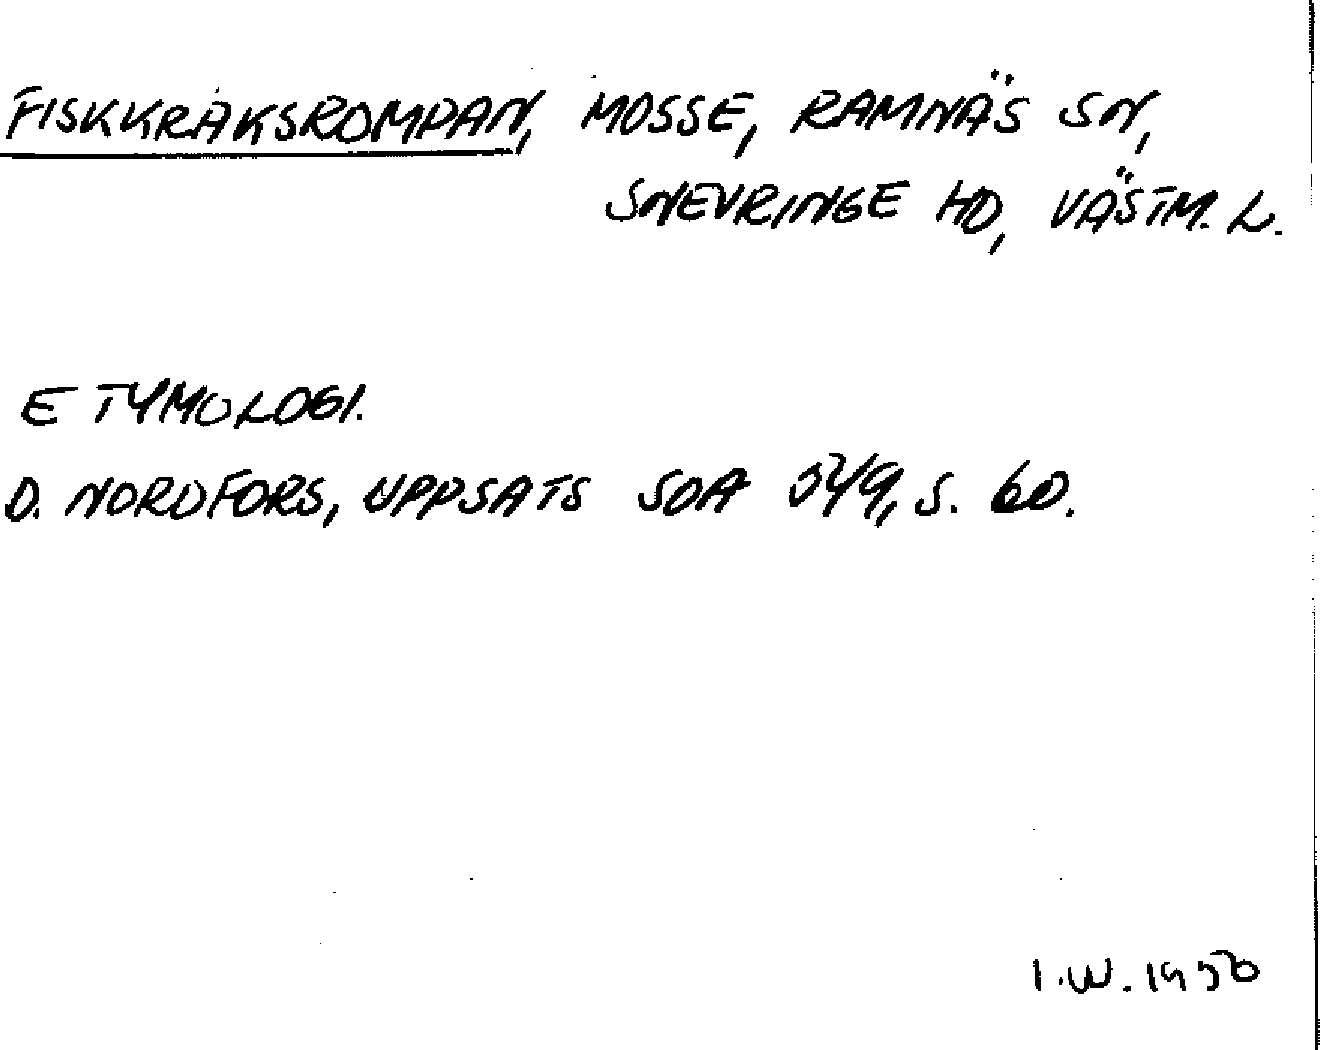 FISKKRÅKSROMPAN, MOSSE, RAMNÄS SN,
SNEVRINGE HD, VÄSTM. L.
ETYMOLOGI.
D. NORDFORS, UPPSATS SOA 54/9, S. 60.
I.W. 1950